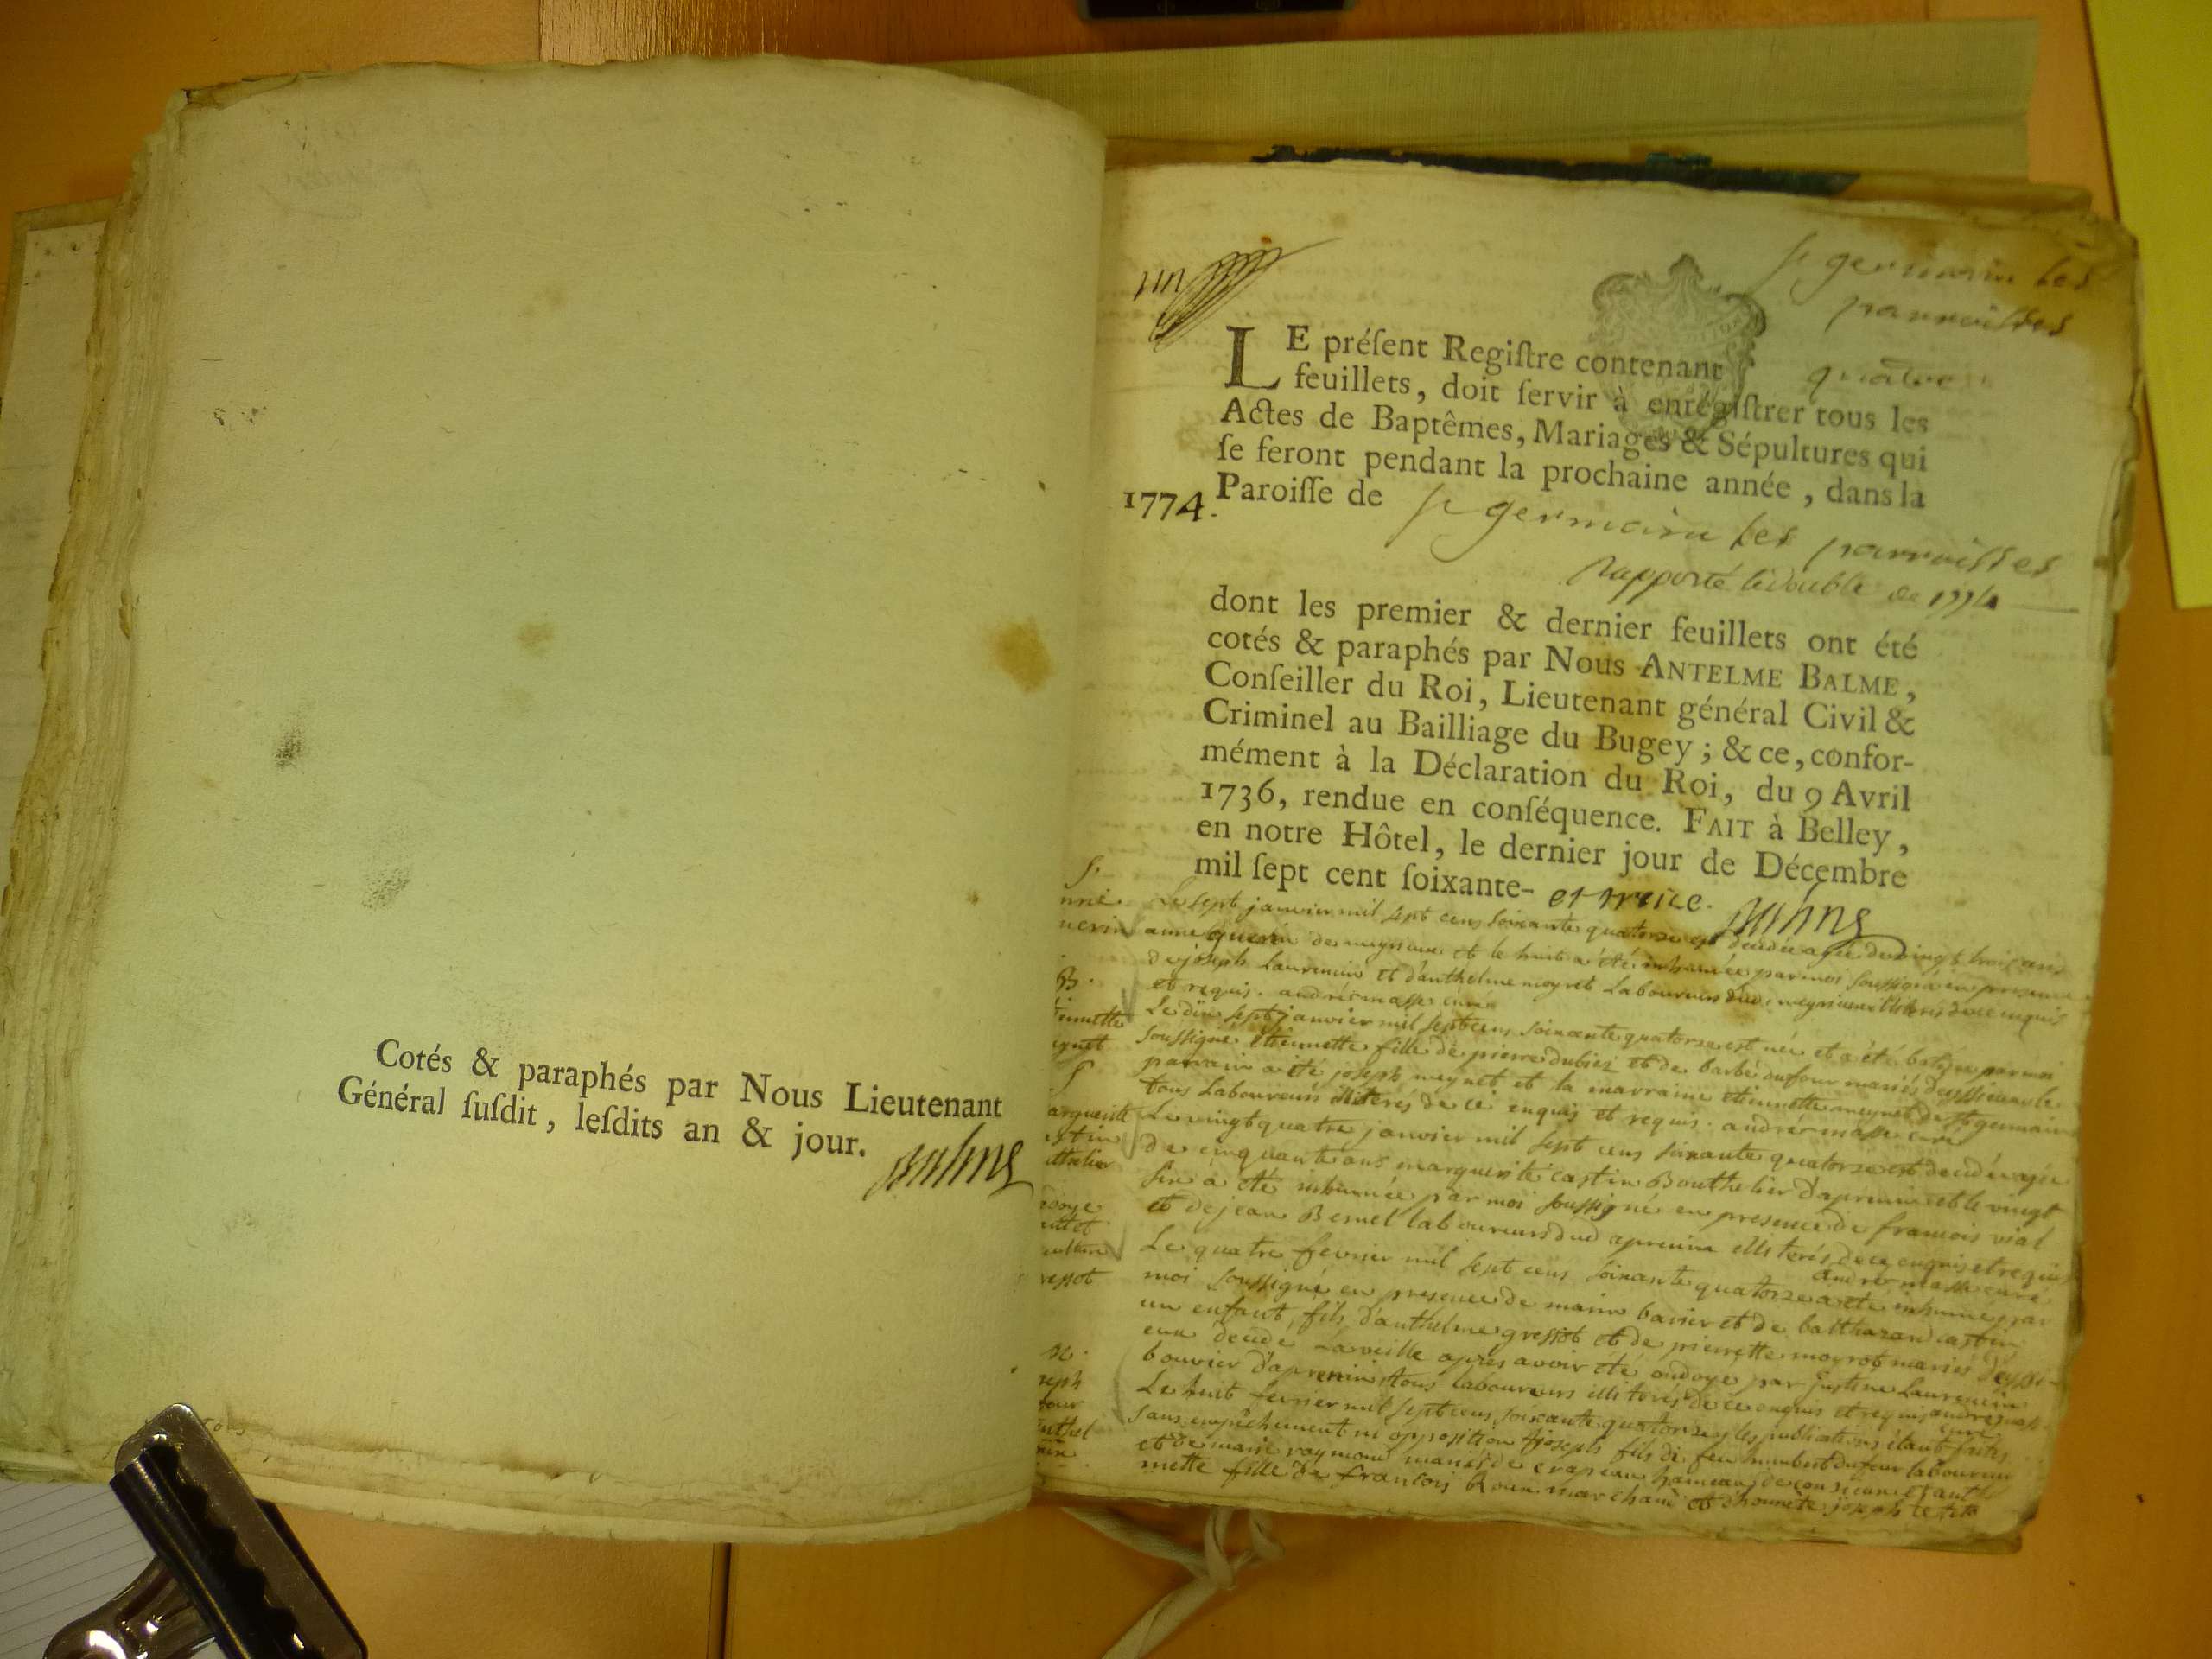 Cotés & paraphés par Nous Lieutenant
Général ſuſdit, leſdits an & jour.
Balme
un
st germain les
parroisses
LE préſent Regiſtre contenant quatre
feuillets, doit ſervir à enrégiſtrer tous les
Actes de Baptêmes, Mariages & Sépultures qui
ſe feront pendant la prochaine année, dans la
1774. Paroiſſe de st germain les parroisses
Rapporté le double de 1774
dont les premier & dernier feuillets ont été
cotés & paraphés par Nous ANTELME BALME,
Conſeiller du Roi, Lieutenant général Civil &
Criminel au Bailliage du Bugey; & ce, confor-
mément à la Déclaration du Roi, du 9 Avril
1736, rendue en conſéquence. FAIT à Belley,
en notre Hôtel, le dernier jour de Décembre
mil ſept cent ſoixante- et treize. Balme
Le sept janvier mil sept cens soixante quatorze est decedée agée de vingt trois ans
anne guerin de meyrieux et le huit a été inhumée par moi soussigné en presence
de joseph Laurencin et d'anthelme moyret Laboureurs dud. meyrieux illiterés de ce enquis
et requis. andré masse curé
Le dix sept janvier mil sept cens soixante quatorze est née et a été batisée par moi
soussigné etiennette fille de pierre dubiez et de barbe dufour mariés
parrain a été joseph meynet et la marraine etiennette meynet de st germain
tous Laboureurs illiterés de ce enquis et requis. andré masse curé
Le vingt quatre janvier mil sept cens soixante quatorze est decedée agée
de cinquante ans marguerite castin Bouthelier d'apremin et le vingt
six a été inhumée par moi soussigné en presence de francois vial
et de jean Bernel laboureurs dud apremin illiterés de ce enquis et requis
andré masse curé
Le quatre fevrier mil sept cens soixante quatorze a été inhumé par
moi soussigné en presence de marin bavier et de balthazard castin
un enfant, fils d'anthelme gressot et de pierrette moyrot mariés
decedé la veille apres avoir été ondoyé par justine Laurencin
bouvier d'apremin tous laboureurs illiterés de ce enquis et requis andré masse
curé
Le huit fevrier mil sept cens soixante quatorze les publications étant faites
sans empêchement ni opposition joseph fils de feu humbert dufour laboureur
et de marie raymond mariés de crapeau hameau de
mette fille de francois Roux marchand et d'honnete